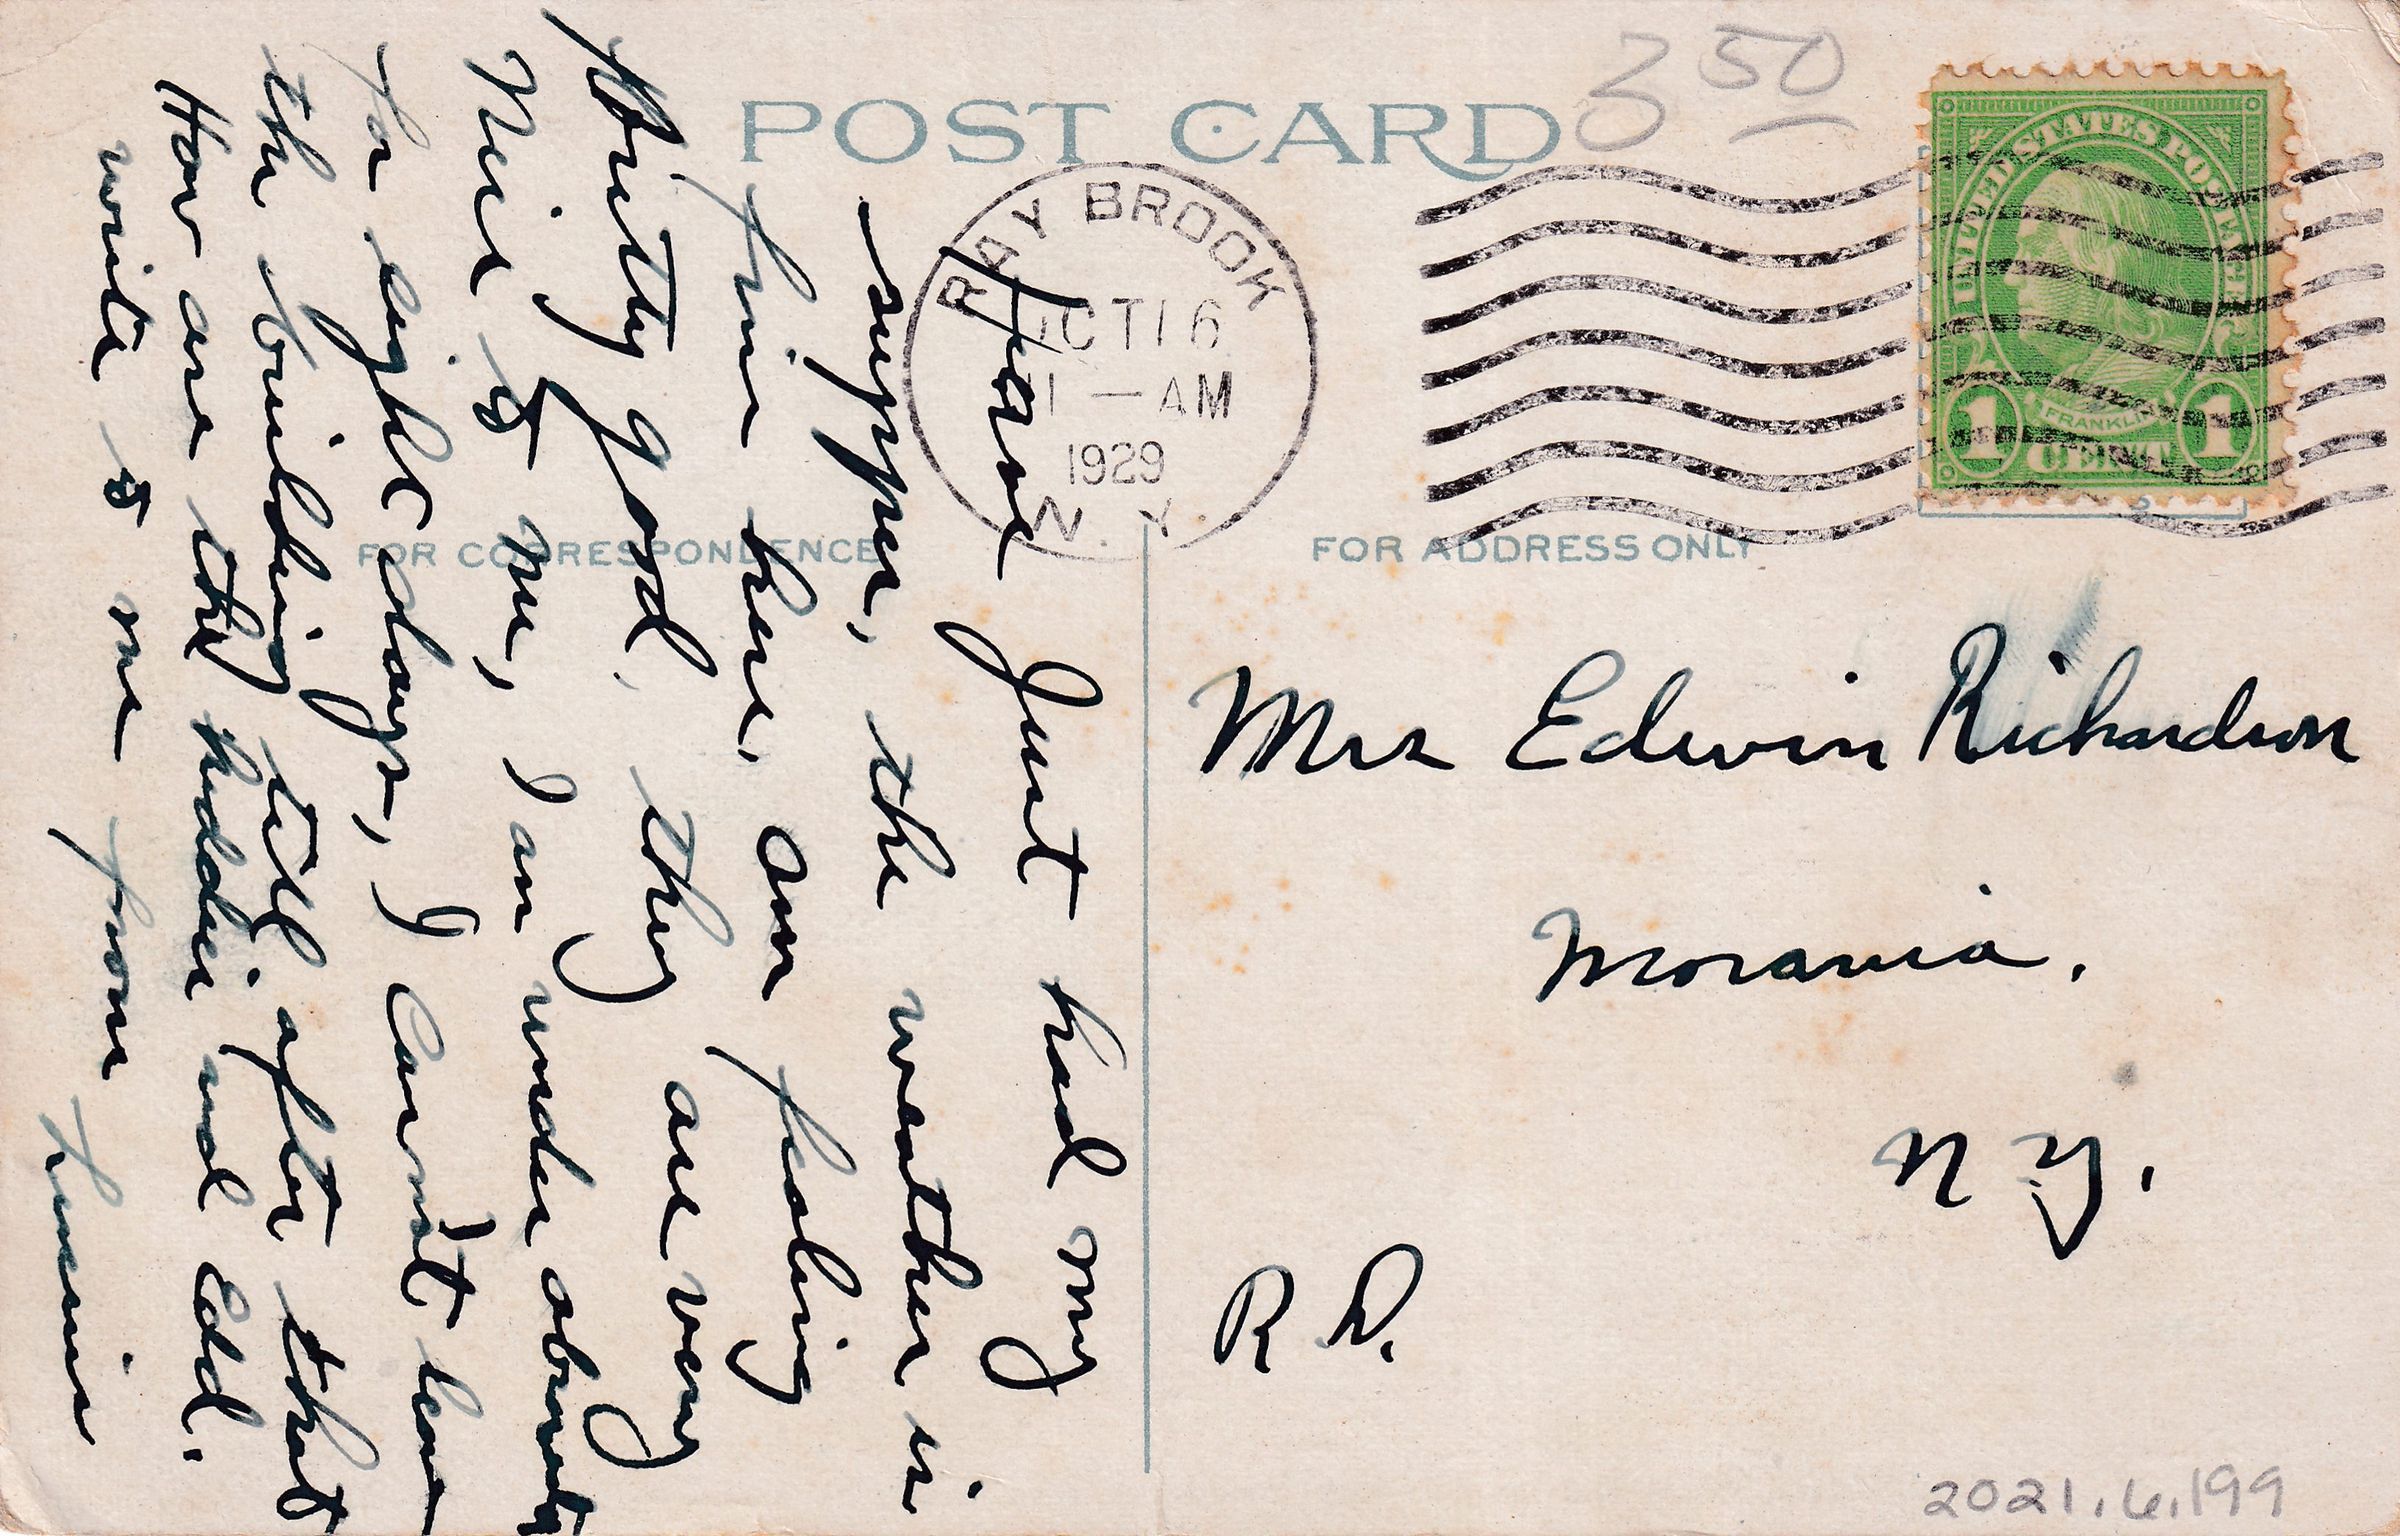 POST CARD
3 50
RAY BROOK
OCT 16
1 — AM
1929
N. Y.
UNITED STATES POSTAGE
FRANKLIN
1 CENT 1
FOR CORRESPONDENCE
FOR ADDRESS ONLY
Just had my
supper, the weather is
fine here. am feeling
pretty good. they are very
Nice to me, I am under
for eight days, I cannot leave
the building till after that
How are the kiddies and Edd.
write to me from
Mrs Edwin Richardson
Moravia.
N Y.
R D.
2021.6.199